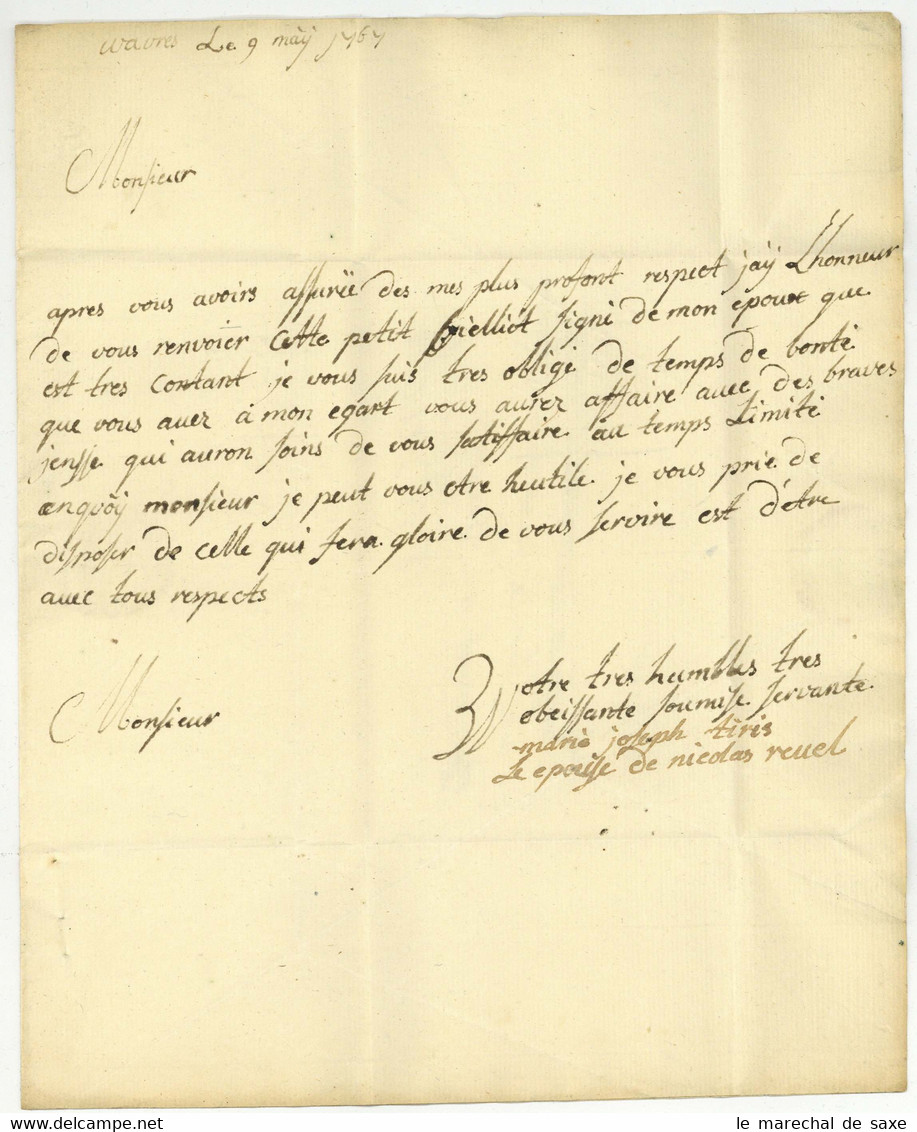 wavres Le 9 maÿ 1767
Monsieur
apres vous avoirs assurëe des mes plus profont respect jaÿ Lhonneur
de vous renvoier cette petit bielliot signé de mon epoux que
est tres contant je vous suis tres obligé de temps de bonté
que vous avez a mon egart vous aurez affaire avec des braves
jensse qui auron soins de vous satiffaire au temps Limité
enquoÿ monsieur je peut vous etre heutile je vous prie de
disposer de celle qui fera gloire de vous servire est d'etre
avec tous respects
Monsieur
Wotre tres humbles tres
obeissante soumise servante
marie joseph tiris
Le epouse de nicolas revel
le marechal de saxe